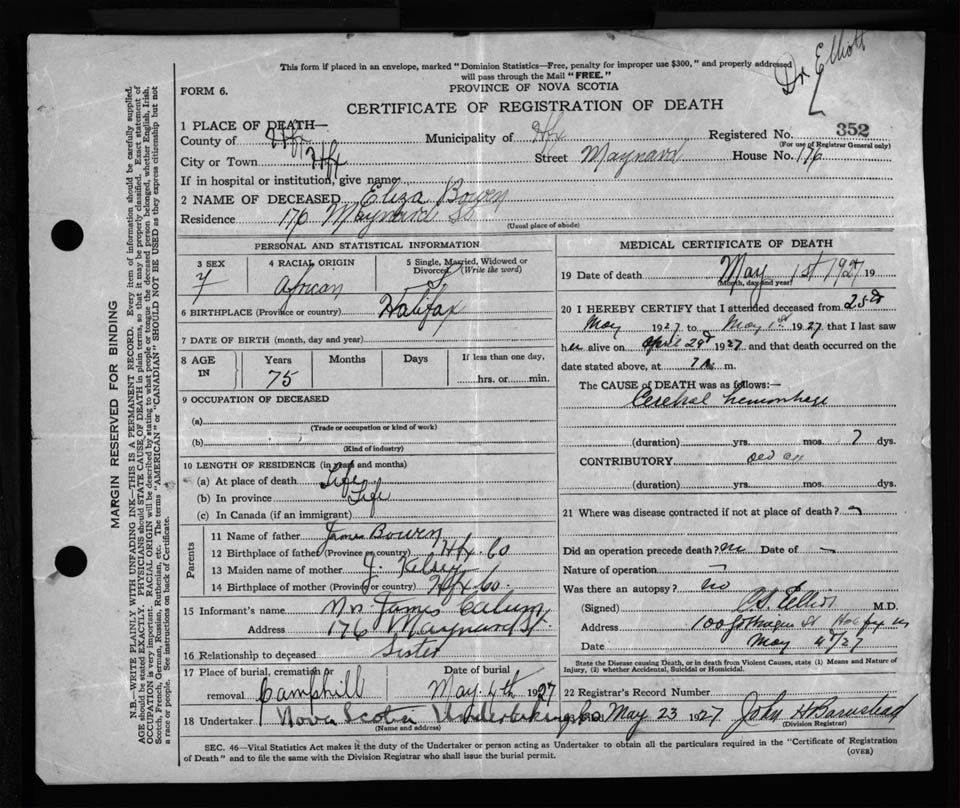 Dr Elliott
This form if placed in an envelope, marked "Dominion Statistics—Free, penalty for improper use $300," and properly addressed
will pass through the Mail "FREE."
FORM 6.
PROVINCE OF NOVA SCOTIA
CERTIFICATE OF REGISTRATION OF DEATH
1 PLACE OF DEATH—
County of Hfx Municipality of Hfx Registered No. 352
(For use of Registrar General only)
City or Town Hfx Street Maynard House No. 176
If in hospital or institution, give name
2 NAME OF DECEASED Eliza Bowen
Residence 176 Maynard St
(Usual place of abode)
PERSONAL AND STATISTICAL INFORMATION
3 SEX 4 RACIAL ORIGIN 5 Single, Married, Widowed or
Divorced (Write the word)
F African S
6 BIRTHPLACE (Province or country) Halifax
7 DATE OF BIRTH (month, day and year)
8 AGE IN Years Months Days If less than one day,
75 hrs. or min.
9 OCCUPATION OF DECEASED
(a)
(Trade or occupation or kind of work)
(b)
(Kind of industry)
10 LENGTH OF RESIDENCE (in years and months)
(a) At place of death Life
(b) In province Life
(c) In Canada (if an immigrant)
Parents
11 Name of father James Bowen
12 Birthplace of father (Province or country) Hfx Co
13 Maiden name of mother J.
14 Birthplace of mother (Province or country) Hfx Co.
15 Informant's name Mrs James
Address 176 Maynard St.
16 Relationship to deceased Sister
17 Place of burial, cremation or Date of burial
removal Camphill May 4th 1927
18 Undertaker Nova Scotia Undertaking Co
(Name and address)
MEDICAL CERTIFICATE OF DEATH
19 Date of death May 1st 1927 19
(Month, day and year)
20 I HEREBY CERTIFY that I attended deceased from 25th
May 1927 to May 1st 1927 that I last saw
her alive on April 29th 1927 and that death occurred on the
date stated above, at 7 A m.
The CAUSE OF DEATH was as follows:—
Cerebral hemorrhage
(duration) yrs. mos. 7 dys.
CONTRIBUTORY Old age
(duration) yrs. mos. dys.
21 Where was disease contracted if not at place of death?
Did an operation precede death? no Date of —
Nature of operation —
Was there an autopsy? no
(Signed) Elliott M.D.
Address 100 Gottingen St Halifax NS
Date May 4th/27
State the Disease causing Death, or in death from Violent Causes, state (1) Means and Nature of
Injury, (2) whether Accidental, Suicidal or Homicidal.
22 Registrar's Record Number
May 23 1927 John H Barnstead
(Division Registrar)
SEC. 46—Vital Statistics Act makes it the duty of the Undertaker or person acting as Undertaker to obtain all the particulars required in the "Certificate of Registration
of Death" and to file the same with the Division Registrar who shall issue the burial permit.
(OVER)
MARGIN RESERVED FOR BINDING
N.B.—WRITE PLAINLY WITH UNFADING INK—THIS IS A PERMANENT RECORD. Every item of information should be carefully supplied.
AGE should be stated EXACTLY. PHYSICIANS should STATE CAUSE OF DEATH in plain terms, so that it may be properly classified. Exact statement of
OCCUPATION is very important. RACIAL ORIGIN will be described by stating to what people or tongue the deceased person belonged, whether English, Irish,
Scotch, French, German, Russian, Ruthenian, etc. The terms "AMERICAN" or "CANADIAN" SHOULD NOT BE USED as they express citizenship but not
a race or people. See instructions on back of Certificate.